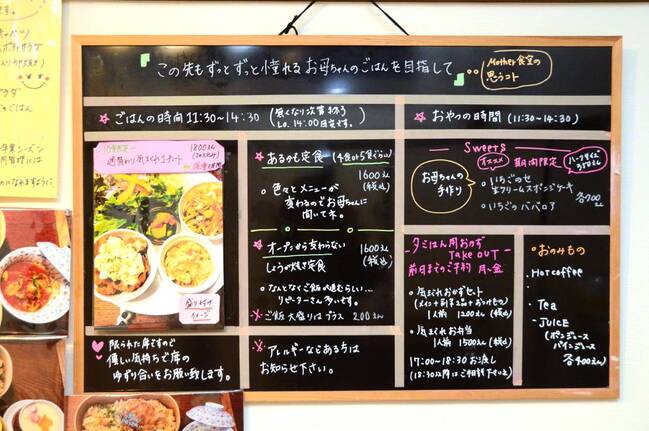 この先もずっとずっと憧れるお母ちゃんのごはんを目指して
Mother食堂の
思うコト
ごはんの時間 11:30~14:30
Lo. 14:00目安です。
おやつの時間 (11:30~14:30)
10食限定
週替わり気まぐれプレート
1800えん
盛り付け
イメージ
あるもの定食 (4食か5食ぐらい)
1600えん
(税込)
色々とメニューが
変わるのでお母ちゃんに
聞いてネ。
オープンから変わらない
しょうが焼き定食
1600えん
(税込)
なんとなくご飯が進むらしい…
リピーターさん多いです。
※ご飯大盛りはプラス 200えん
限られた席ですので
優しい気持ちで席の
ゆずり合いをお願い致します。
※アレルギーなどある方は
お知らせ下さい。
Sweets
オススメ 期間限定
お母ちゃんの
手作り
いちごのせ
生クリームスポンジケーキ
いちごのババロア
各700えん
夕ごはん用おかず
Take OUT
前日までのご予約 月~金
気まぐれおかずセット
(メイン+副菜2品+おつけもの)
1人前 1200えん (税込)
気まぐれお弁当
1人前 1500えん (税込)
17:00~18:30お渡し
(18:30以降はご相談下さい)
おのみもの
Hot coffee
Tea
Juice
(ポンジュース
パインジュース)
各400えん